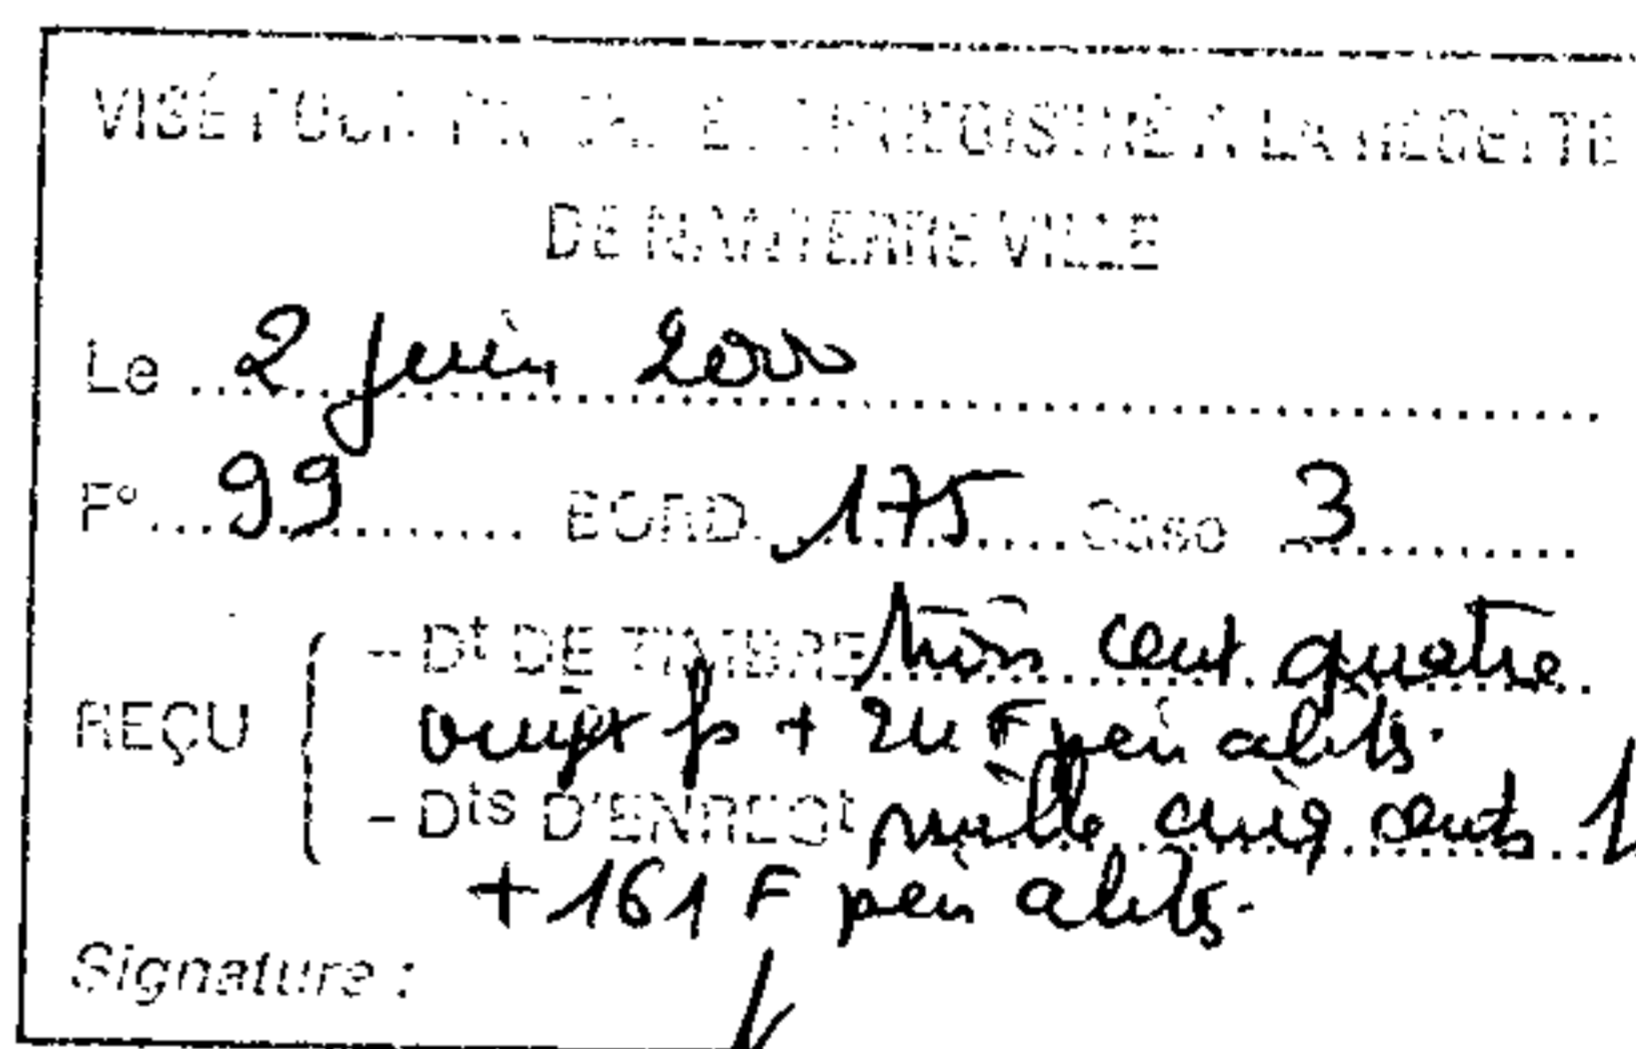 VISÉ POUR TIMBRE ET ENREGISTRÉ A LA RECETTE
DE NANTERRE VILLE
Le 2 juin 2000
F° 99 BORD. 175 Case 3
REÇU
- Dt DE TIMBRE trois cent quatre
vingt F + 24 F pénalités.
- Dts D'ENREGt mille cinq cents F
+ 161 F pénalités.
Signature :